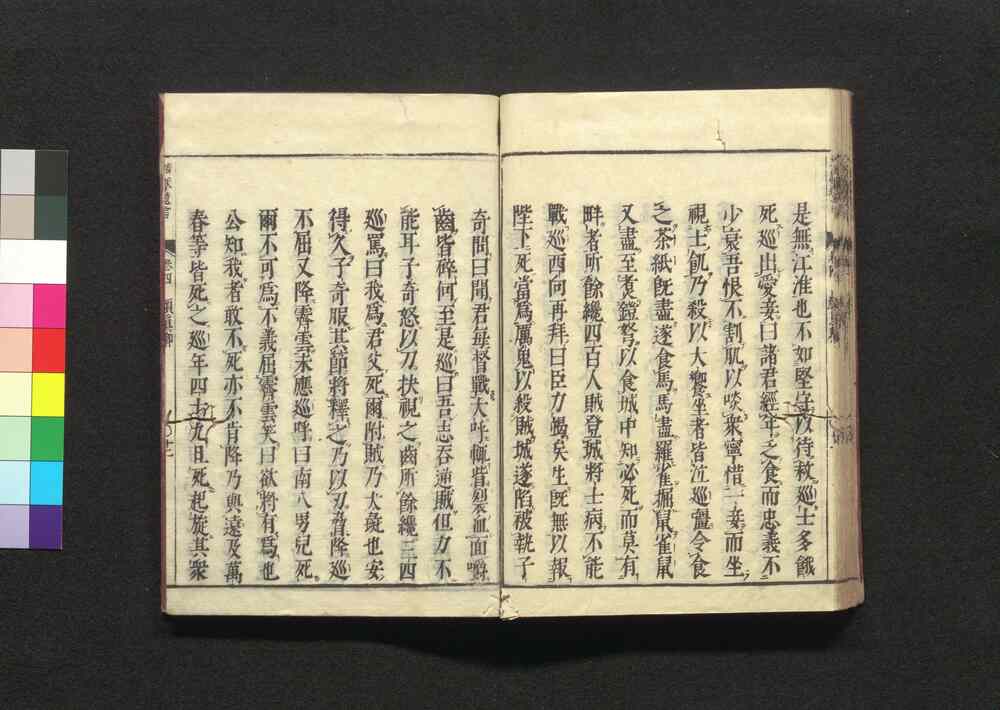 是無江淮也不如堅守以待救巡士多餓
死巡出愛妾曰諸君經年乏食而忠義不
少衰吾恨不割肌以啖衆寧惜一妾而坐
視士飢乃殺以大饗坐者皆泣巡彊令食
之茶紙既盡遂食馬馬盡羅雀掘鼠雀鼠
又盡至煮鎧弩以食城中知必死而莫有
畔者所餘纔四百人賊登城將士病不能
戰巡西向再拜曰臣力竭矣生既無以報
陛下死當爲厲鬼以殺賊城遂陷被執子
奇問曰聞君毎督戰大呼輒眥裂血面嚼
齒皆碎何至是巡曰吾志吞逆賊但力不
能耳子奇怒以刀抉視之齒所餘纔三四
巡罵曰我爲君父死爾附賊乃犬彘也安
得久子奇服其節將釋之乃以刃脅降巡
不屈又降霽雲未應巡呼曰南八男兒死
爾不可爲不義屈霽雲笑曰欲將有爲也
公知我者敢不死亦不肯降乃與遠及萬
春等皆死之巡年四十九且死起旋其衆
靖獻遺言 卷四 顏真卿